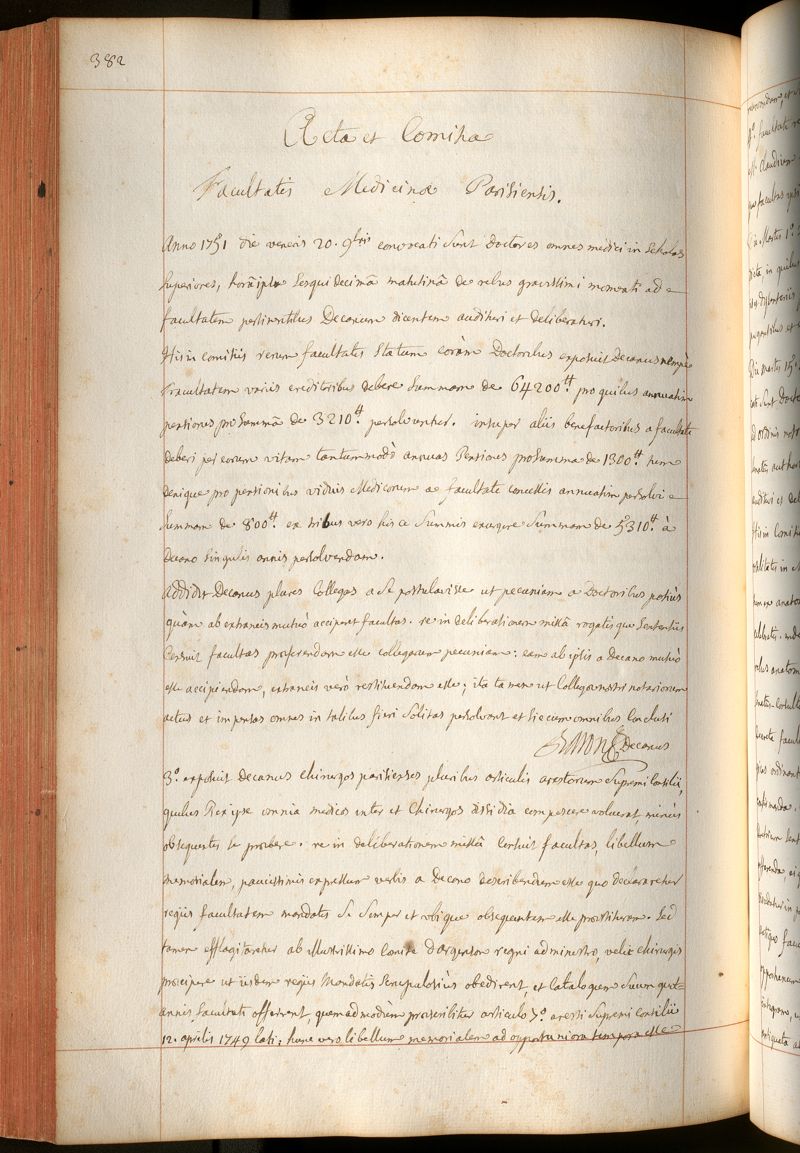 382
Acta et Comitia
Facultatis Medicinæ Parisiensis.
Anno 1751 die veneris 20. 9bris convocati sunt Doctores omnes medici in scholas
superiores, horâ ipsa sesqui decimâ matutinâ de rebus gravissimi momenti ad
facultatem pertinentibus Decanum dicentem audituri et deliberaturi.
His in comitiis rerum facultatis statum coràm Doctoribus exposuit Decanus nempè
Facultatem variis creditoribus debere summam de 64200tt. pro quibus annuatim
pensiones pro summâ de 3210tt. persolvuntur. insuper aliis benefactoribus a facultate
deberi per eorum vitam tantummodò annuas Pensiones pro summa de 1300tt. tum
denique pro pensionibus viduis Medicorum a facultate concessis annuatim persolvi
summam de 800tt. ex tribus vero hisce summis exurgere summam de 5310tt. à
Decano singulis annis persolvendam.
Addidit Decanus plures Collegas a se postulavisse ut pecuniam a Doctoribus potiùs
quàm ab extraneis mutuò acciperet facultas. re in deliberationem missâ rogatisque sententiis
Censuit facultas præferendam esse collegarum pecuniam: eam ab ipsis a Decano mutuò
esse accipiendam, extraneis verò restituendam esse; ita tamen ut Collegæ nostri notariorum
actus et impensas omnes in talibus fieri solitas persolvant et sic cum omnibus Conclusi
Baron Decanus
3.o exposuit Decanus chirurgos parisienses pluribus articulis arestorum supremi Consilii,
quibus Rex ipse omnia medicos inter et Chirurgos dissidia compescere voluerat, minùs
obsequentes se præbere. re in deliberationem missâ Censuit facultas, libellum
memorialem, paucissimis expressum verbis a Decano describendum esse quo declararetur
regiis facultatem mandatis se semper et ubique obsequentem esse præstituram. Sed
tamen efflagitaretur ab illustrissimo Comite D'argenson regni administro, velit chirurgis
præcipere ut iisdem regiis Mandatis scrupulosiùs obedirent, et Catalogum suum quot-
annis saluberr. offerrent, quemadmodùm præscribitur articulo 7.o aresti Supremi Consilii
12. aprilis 1749 lati; hunc vero libellum memorialem ad opportuniora tempora esse